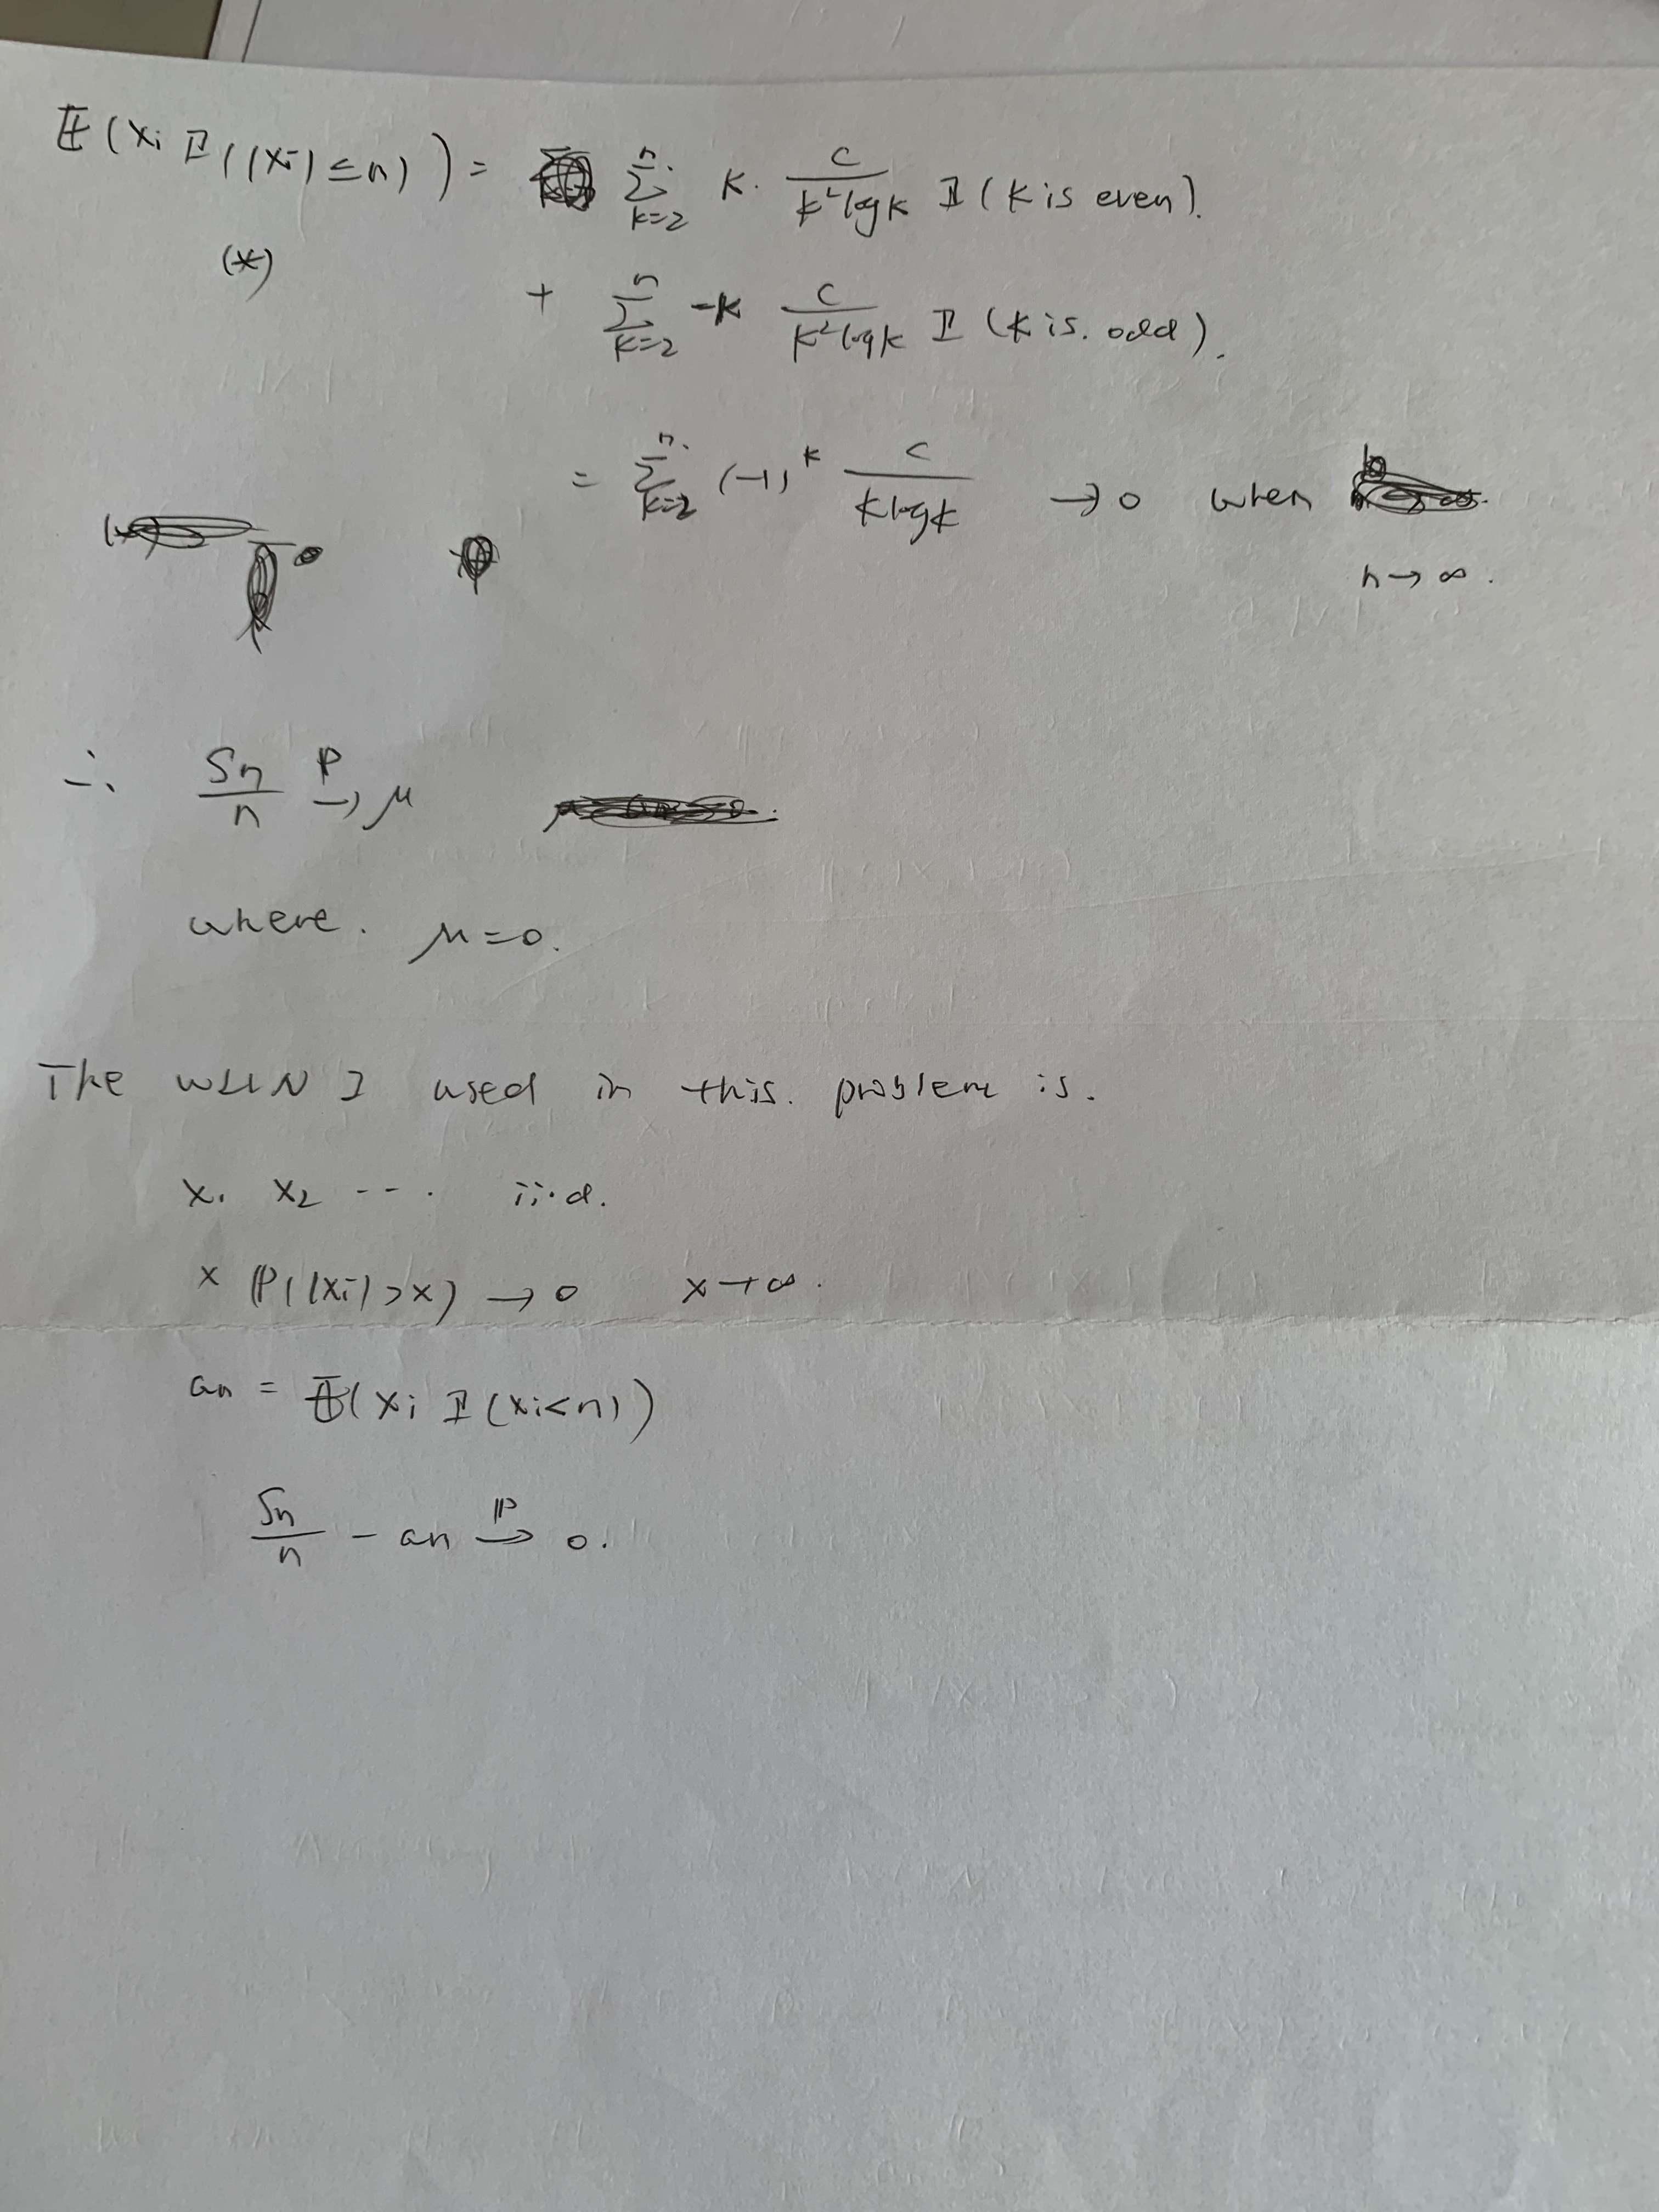 𝔼(Xi 𝕀(|Xi| ≤ n)) = Σ_{k=2}^{n} k · C/(k² log k) 𝕀(k is even).
(*)
+ Σ_{k=2}^{n} -k C/(k² log k) 𝕀(k is. odd).
= Σ_{k=2}^{n} (-1)^k C/(k log k) → 0 when
n → ∞.
∴ Sn/n →^ℙ μ
where. μ = 0.
The WLLN I used in this. problem is.
X1 X2 --- . i.i.d.
x ℙ(|Xi| > x) → 0 x → ∞.
an = 𝔼(Xi 𝕀(Xi < n))
Sn/n - an →^ℙ 0.